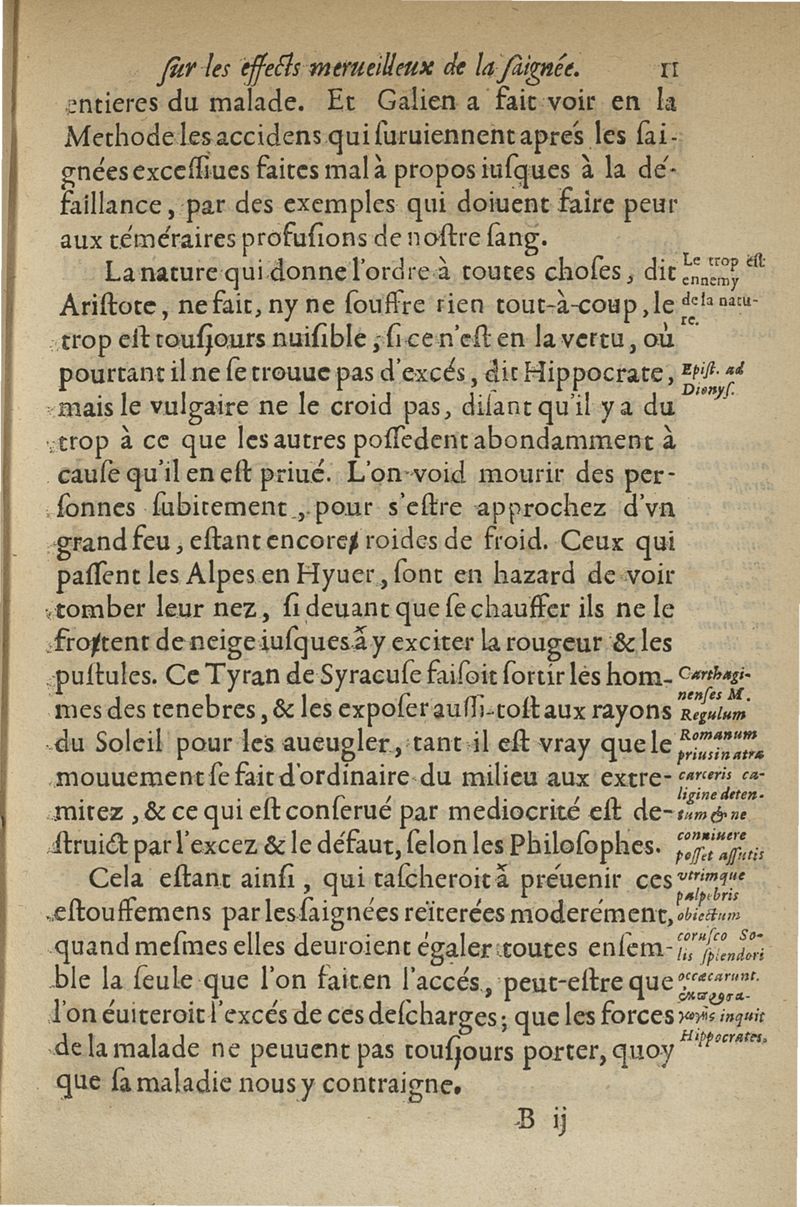 ſur les effects merueilleux de la ſaignée. 11
entieres du malade. Et Galien a fait voir en la
Methode les accidens qui ſuruiennent aprés les ſai-
gnées exceſſiues faites mal à propos iuſques à la dé-
faillance, par des exemples qui doiuent faire peur
aux téméraires profuſions de noſtre ſang.
La nature qui donne l'ordre à toutes choſes, dit
Ariſtote, ne fait, ny ne ſouffre rien tout-à-coup, le
trop eſt touſjours nuiſible, ſi ce n'eſt en la vertu, où
pourtant il ne ſe trouue pas d'excés, dit Hippocrate,
mais le vulgaire ne le croid pas, diſant qu'il y a du
trop à ce que les autres poſſedent abondamment à
cauſe qu'il en eſt priué. L'on void mourir des per-
ſonnes ſubitement, pour s'eſtre approchez d'vn
grand feu, eſtant encore roides de froid. Ceux qui
paſſent les Alpes en Hyuer, ſont en hazard de voir
tomber leur nez, ſi deuant que ſe chauffer ils ne le
frottent de neige iuſques à y exciter la rougeur & les
puſtules. Ce Tyran de Syracuſe faiſoit ſortir les hom-
mes des tenebres, & les expoſer auſſi-toſt aux rayons
du Soleil pour les aueugler, tant il eſt vray que le
mouuement ſe fait d'ordinaire du milieu aux extre-
mitez, & ce qui eſt conſerué par mediocrité eſt de-
ſtruict par l'excez & le défaut, ſelon les Philoſophes.
Cela eſtant ainſi, qui taſcheroit à préuenir ces
eſtouffemens par les ſaignées reïterées moderément,
quand meſmes elles deuroient égaler toutes enſem-
ble la ſeule que l'on fait en l'accés, peut-eſtre que
l'on éuiteroit l'excés de ces deſcharges; que les forces
de la malade ne peuuent pas touſjours porter, quoy
que ſa maladie nous y contraigne.
B ij
Le trop eſt
ennemy
de la natu-
re.
Epiſt. ad
Dionyſ.
Carthagi-
nenſes M.
Regulum
Romanum
prius in atra
carceris ca-
ligine deten-
tum & ne
conniuere
poſſet aſſutis
vtrimque
palpebris
obiectum
coruſco So-
lis ſplendori
occæcarunt.
inquit
Hippocrates.